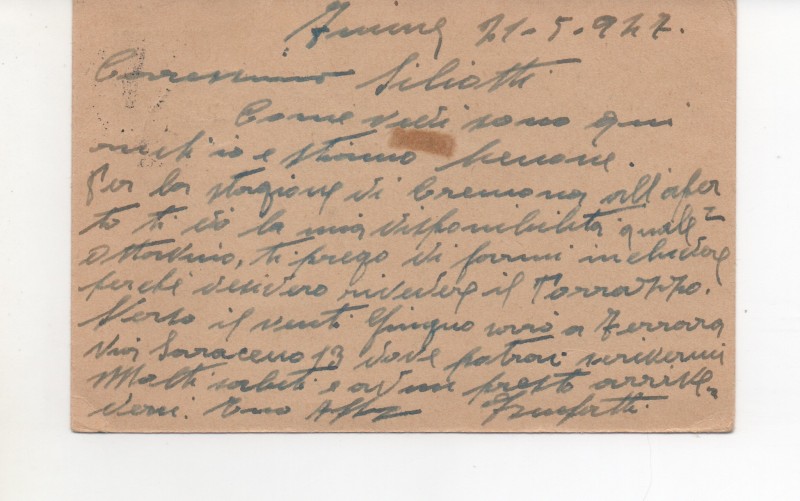 Fiume 21-5-947.
Carissimo Siliotti
Come vedi sono qui
anch'io e stiamo benone.
Per la stagione di Cremona all'aper
to ti do la mia disponibilità quale
ottavino, ti prego di farmi includere
perché desidero rivedere il Torrazzo.
Verso il venti Giugno sarò a Ferrara
Via Saraceno 13 dove potrai scrivermi
Molti saluti e ad un presto arrive-
derci. Tuo